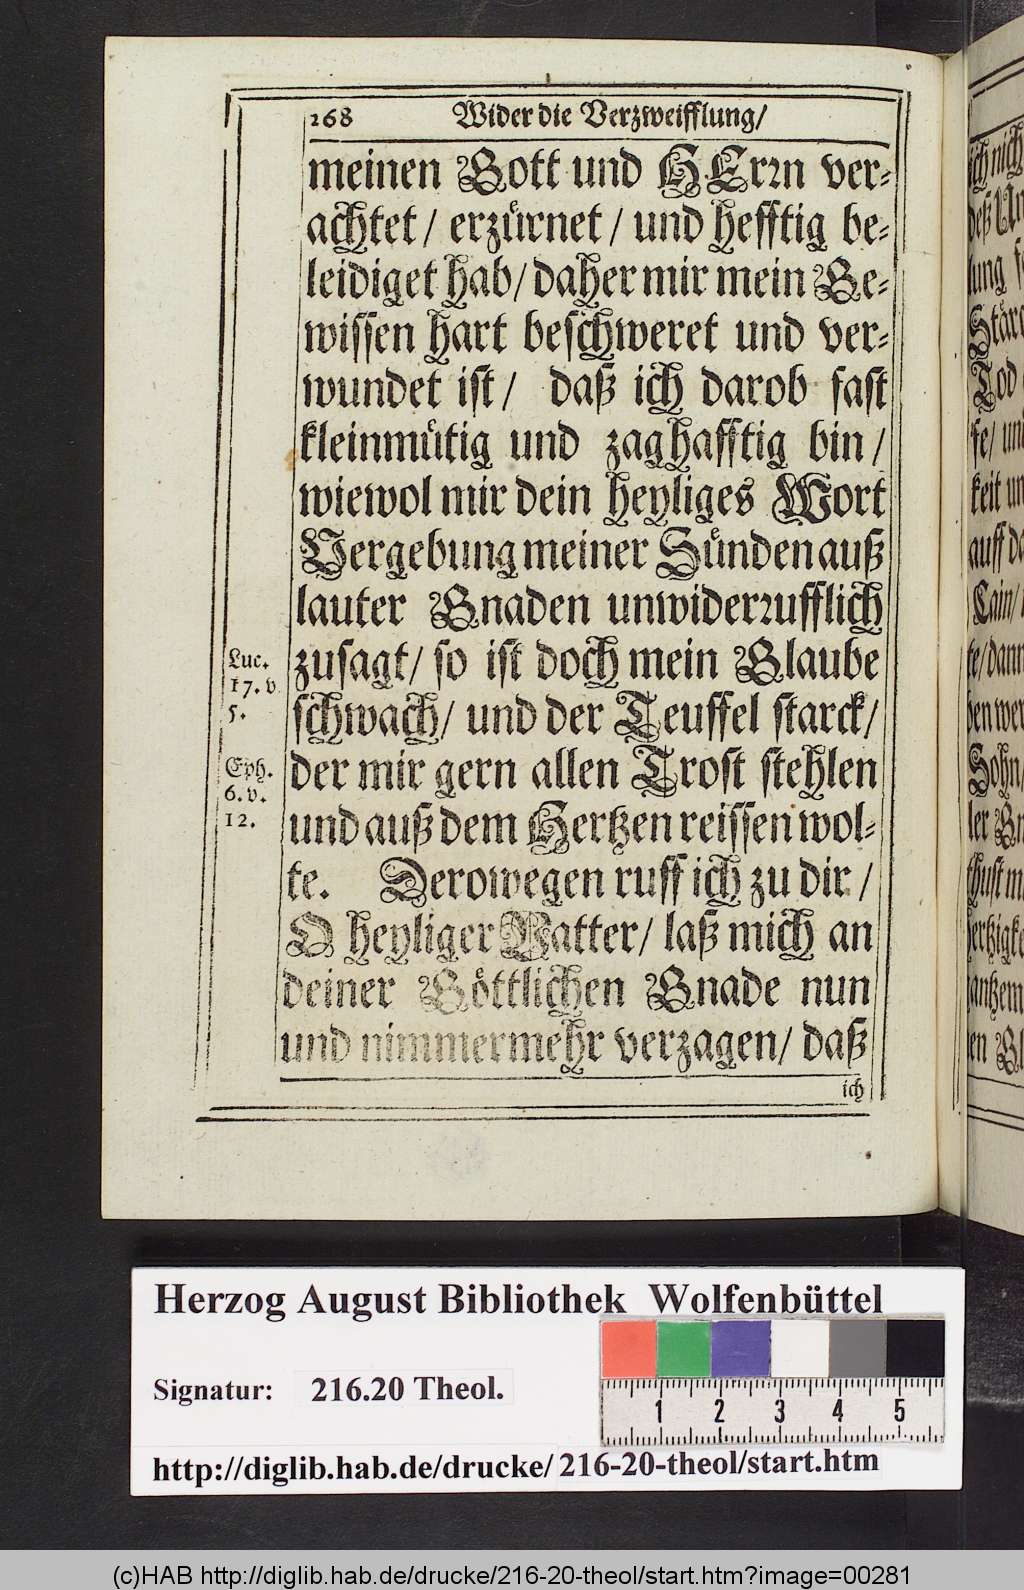 168 Wider die Verzweifflung/
meinen Gott und HErrn ver-
achtet/ erzürnet/ und hefftig be-
leidiget hab/ daher mir mein Ge-
wissen hart beschweret und ver-
wundet ist/ daß ich darob fast
kleinmütig und zaghafftig bin/
wiewol mir dein heyliges Wort
Vergebung meiner Sünden auß
lauter Gnaden unwiderrufflich
zusagt/ so ist doch mein Glaube
schwach/ und der Teuffel starck/
der mir gern allen Trost stehlen
und auß dem Hertzen reissen wol-
te. Derowegen ruff ich zu dir/
O heyliger Vatter/ laß mich an
deiner Göttlichen Gnade nun
und nimmermehr verzagen/ daß
ich
Luc.
17. v
5.
Eph.
6. v.
12.
ich nich
lung
Tod
fe/ un
keit un
auff da
Cain/
te/ dann
ben wer
Sohn/
ler Gn
thust m
hertzigke
gantzem
en
Herzog August Bibliothek Wolfenbüttel
Signatur: 216.20 Theol.
1 2 3 4 5
http://diglib.hab.de/drucke/216-20-theol/start.htm
(c)HAB http://diglib.hab.de/drucke/216-20-theol/start.htm?image=00281